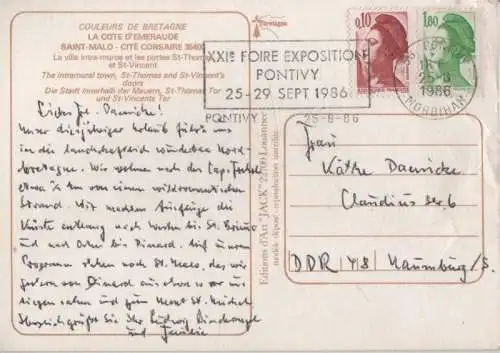 COULEURS DE BRETAGNE
LA COTE D'EMERAUDE
SAINT-MALO - CITÉ CORSAIRE 35400
La ville intra-muros et les portes St-Thomas
et St-Vincent
The intramural town, St-Thomas and St-Vincent's
doors
Die Stadt innerhalb der Mauern, St-Thomas Tor
und St-Vincents Tor
Bretagne
0,10
1,80
XXIe FOIRE EXPOSITION
PONTIVY
25-29 SEPT 1986
PONTIVY
25-8-86
25-8
1986
MORBIHAN
Unser diesjähriger Urlaub führte uns
in die landschaftlich wunderbare Nord-
bretagne. Wir wohnen nach der Cap
etwa km von einem wildromantischen
Strand. Wir machen Ausflüge die
Küste entlang nach Westen bis St. Brieuc
und nach Osten bis Dinard. Auf unserem
Programm stehen noch St. Malo, das wir
gestern von Dinard aus schon so vor uns
liegen sahen und zum Mont St. Michel
Herzlich grüße Sie Ihr Ludwig
und Familie
Editions d'Art "JACK"
Frau
Käthe
Claudiusstr. 6
DDR 48 Naumburg/S.